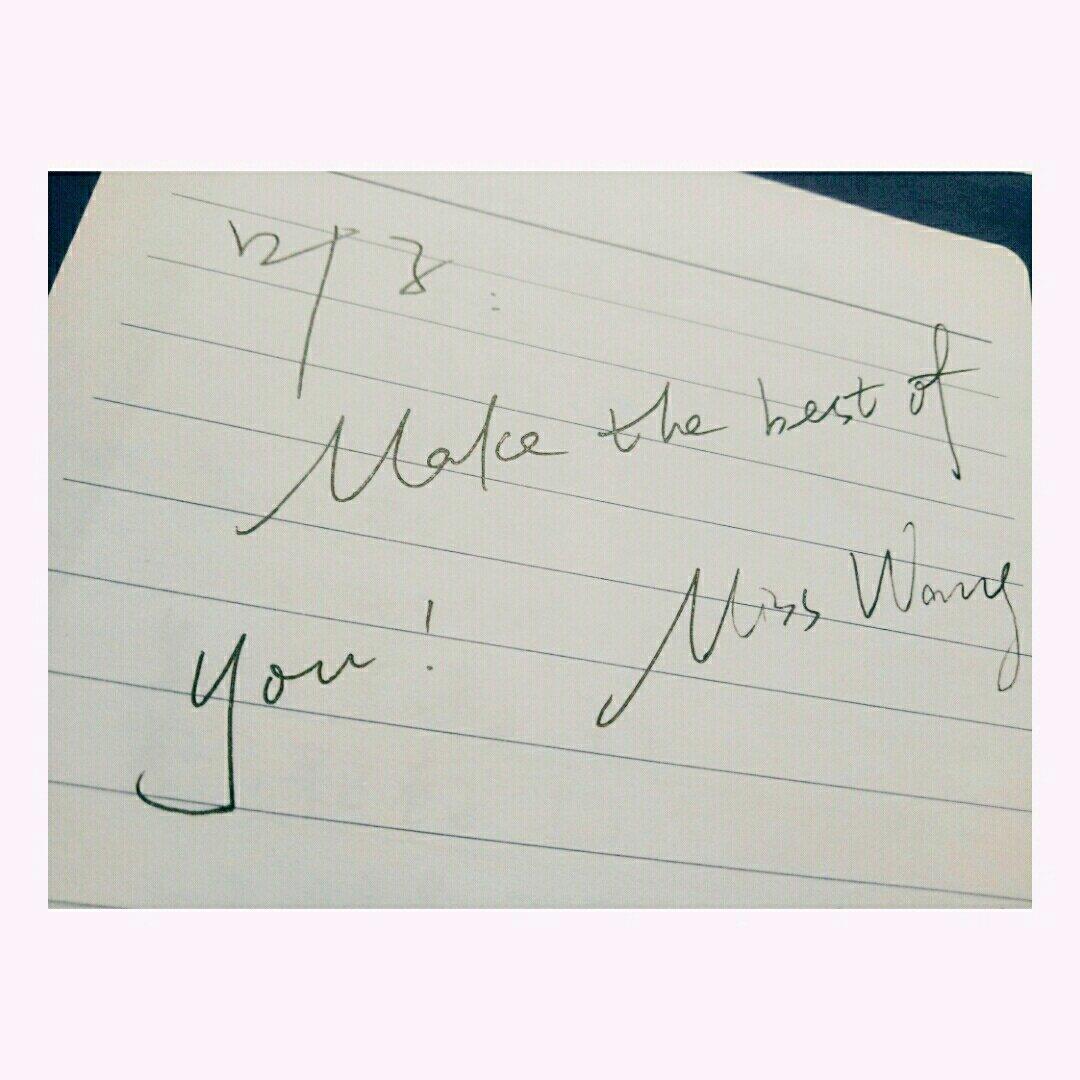 叶子:
Make the best of
you!
Miss Wang